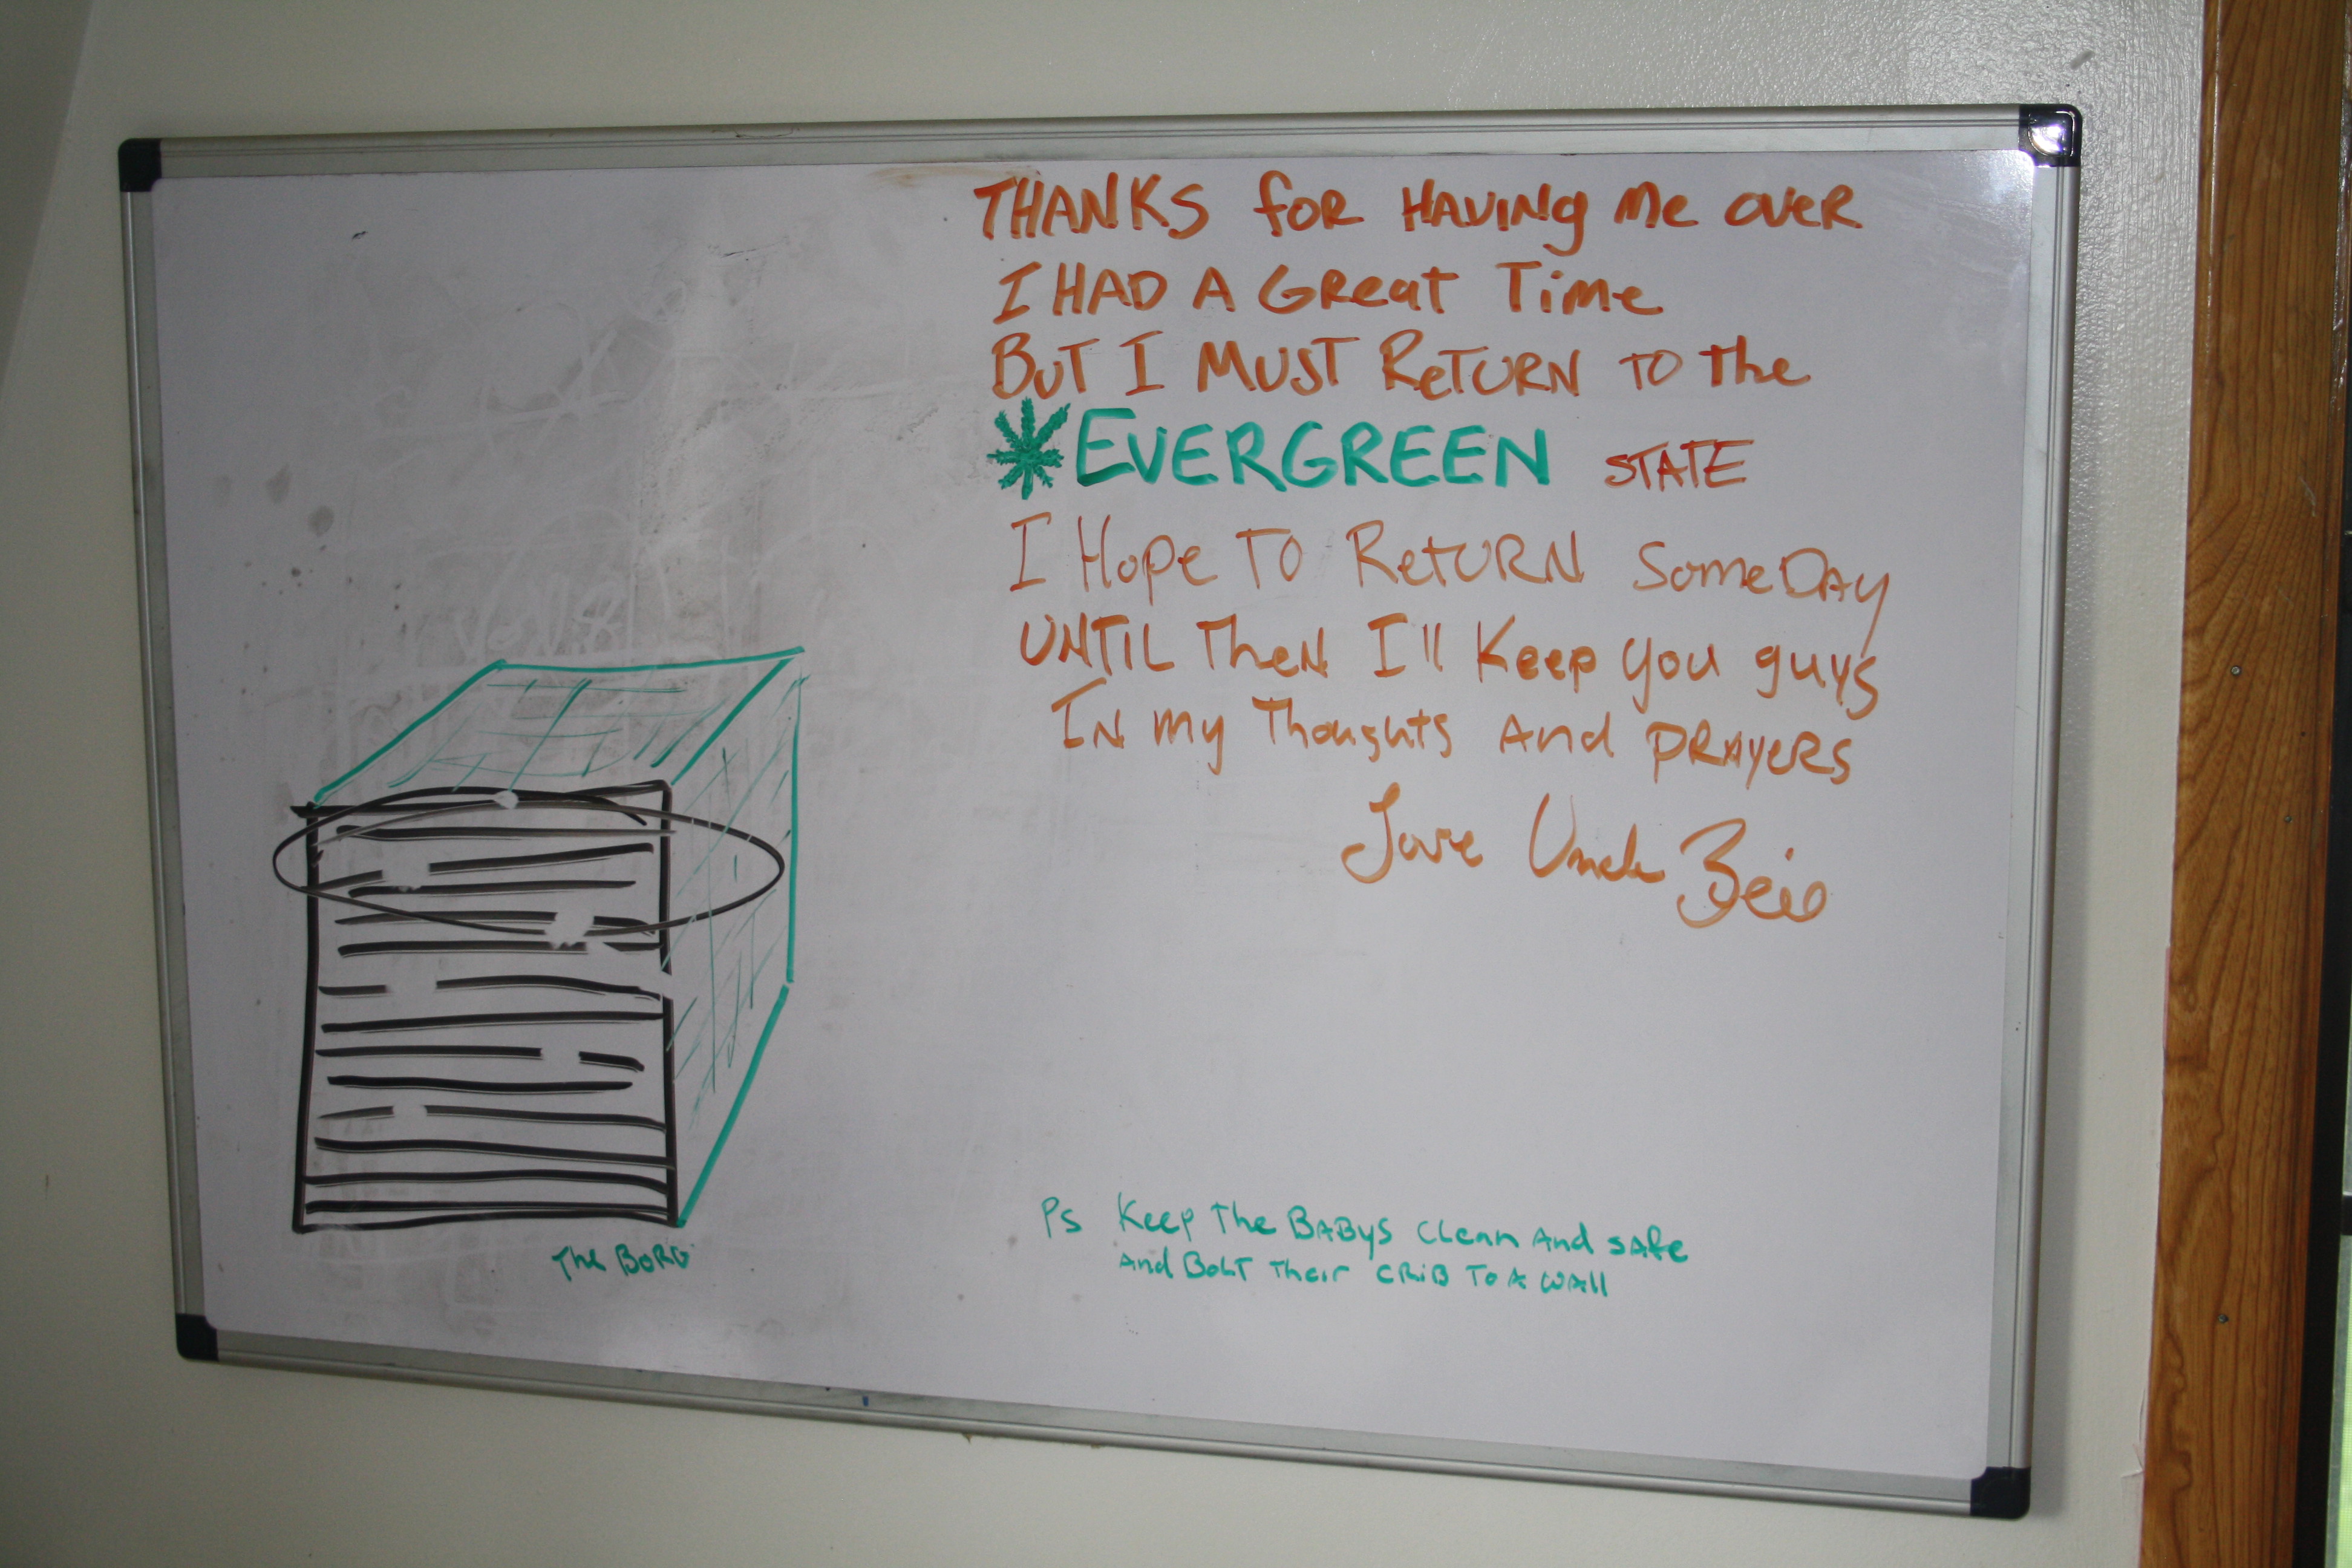 THANKS for HAVING me over
I HAD A Great Time
BUT I MUST ReTURN TO The
EVERGREEN STATE
I Hope TO ReTURN SomeDAY
UNTIL TheN I'll Keep you guys
IN my Thoughts And PRAYERS
Love Uncle
The BORG
Ps Keep The BABYS Clean And safe
And BOLT Their CRiB To A wAll